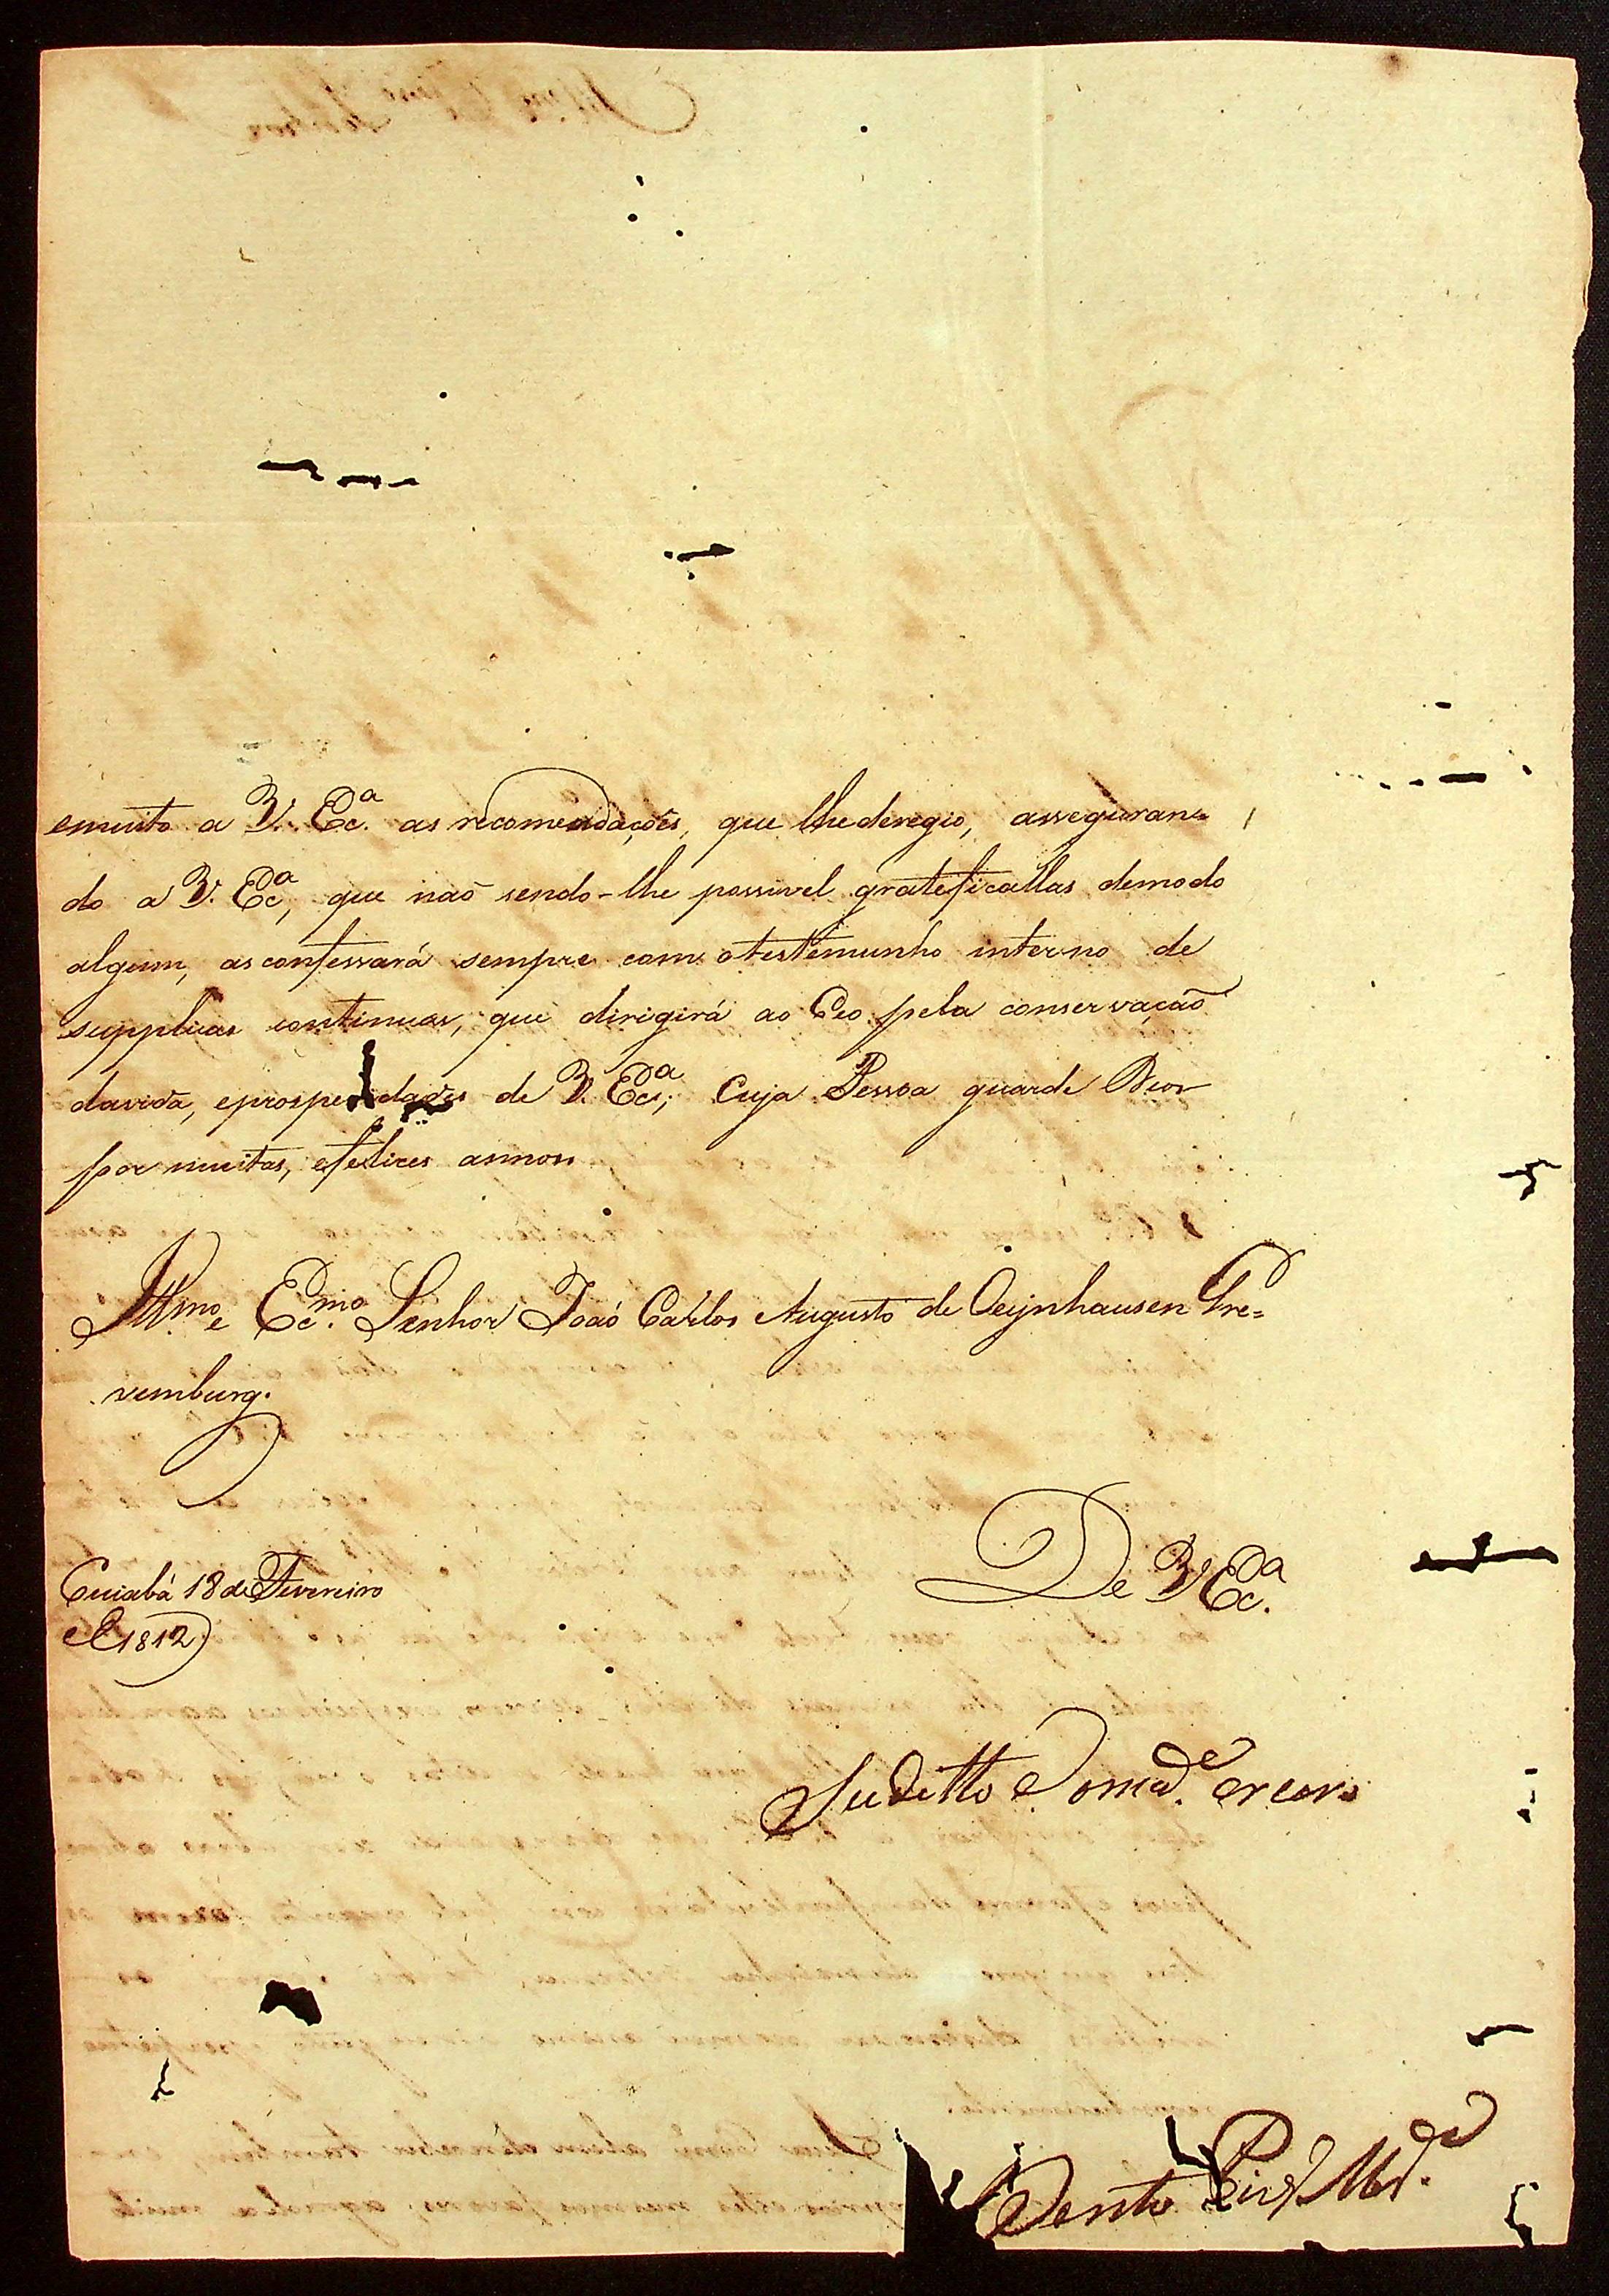 emuito a V. Ecª. as recomendações, que lhederegio, asseguran=
do a V. Ecª, que naõ sendo-lhe possivel grateficallas demodo
algum, asconfessará sempre com otestemunho interno de
supplicas continuas, que dirigirá ao Ceo pela conservaçaõ
davida, eprosperidades de V. Ecª; Cuja Pessoa guarde Deos
por muitos, efelices annos
Illmo e Ecmo. Senhor Joaõ Carlos Augusto de Oeijnhausen Gre=
vemburg.
De V Ecª.
Cuiabá 18 de Fevereiro
de 1812
Suditto
Bento Pires Mdª.